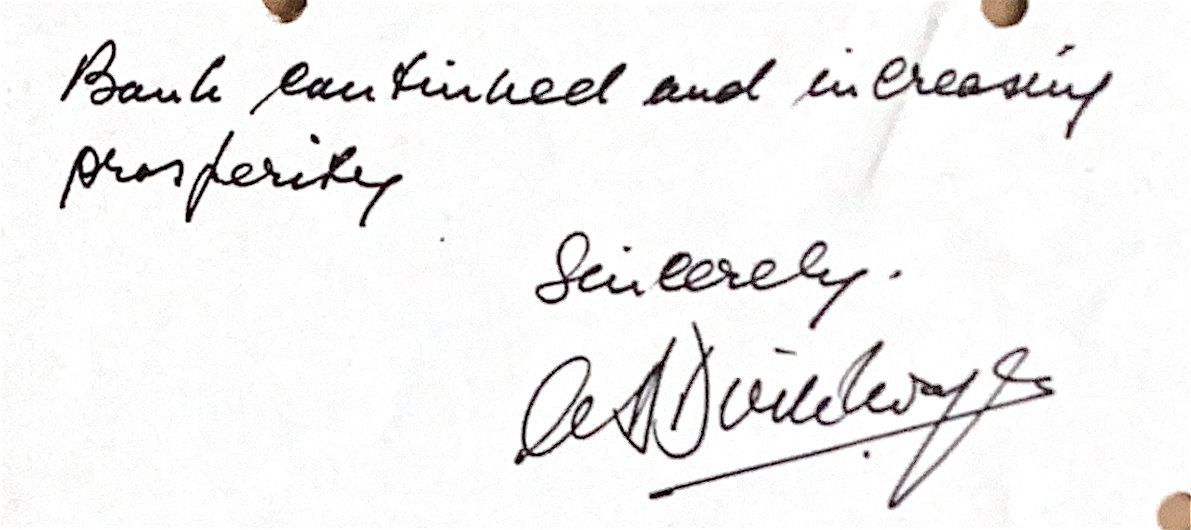 Bank continued and increasing
prosperity
Sincerely.